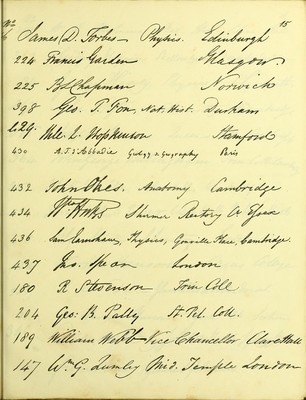 No. 15
6 James D. Forbes Physics. Edinburgh
224 Francis Garden Glasgow
225 Chapman Norwich
398 Geo. T. Fox, Nat. Hist. Durham
429. Stamford
430 A. T. d'Abbadie Geology & Geography Paris
432 John Okes. Anatomy Cambridge
434 Rectory Essex
436 Sam Earnshaw, Physics, Gonville Place, Cambridge.
437 Jno. Spear London
180 R. Stevenson Trin: Coll
204 Geo: B. Paley St. Pet. Coll.
189 William Webb Vice Chancellor Clare Hall
147 Wm. G. Lumley Mid. Temple London